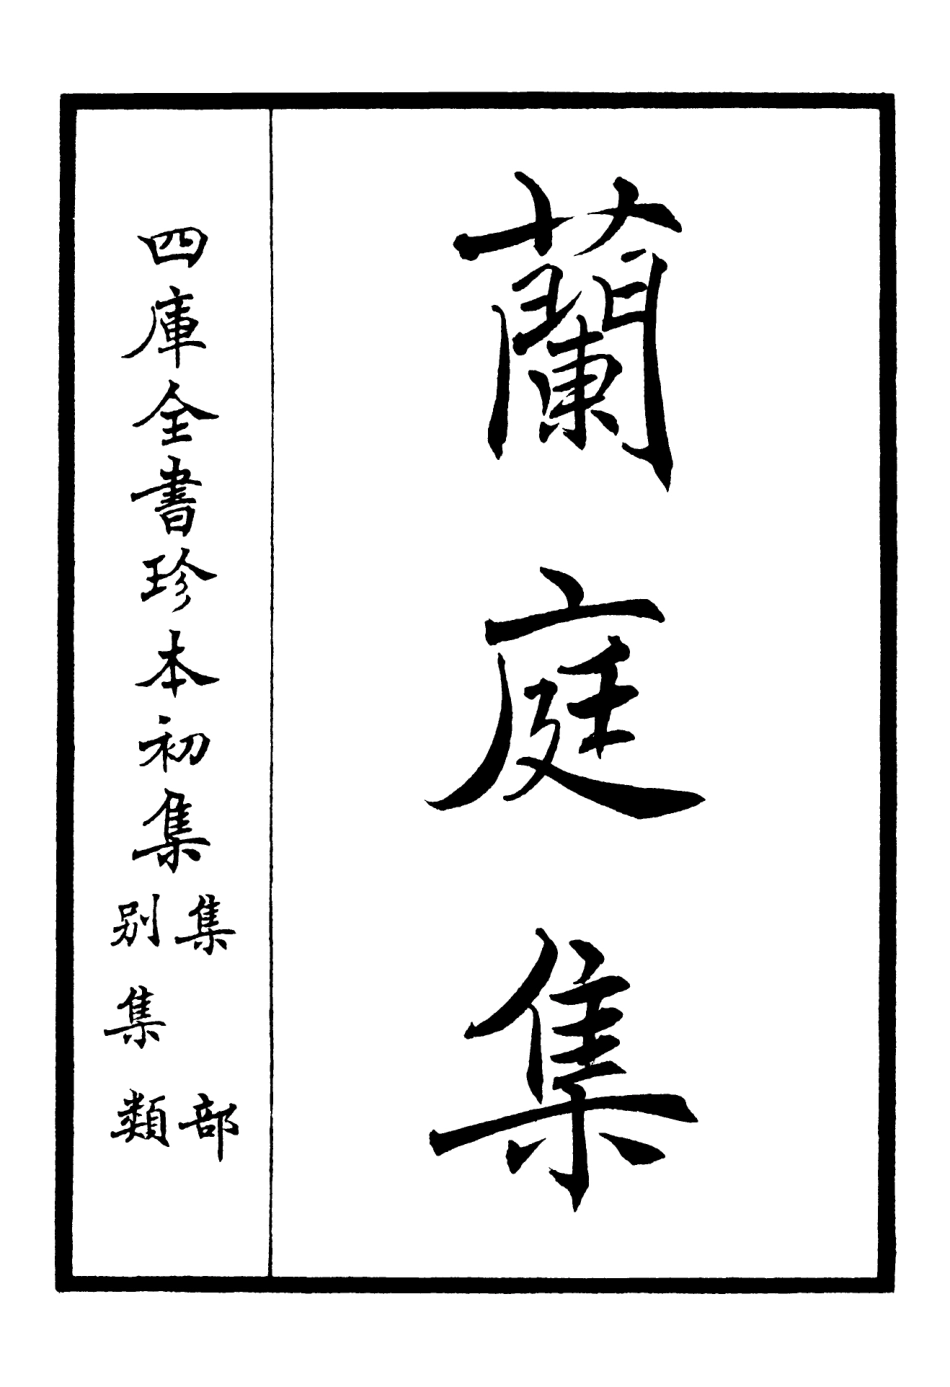 蘭庭集
四庫全書珍本初集
集部
别集類